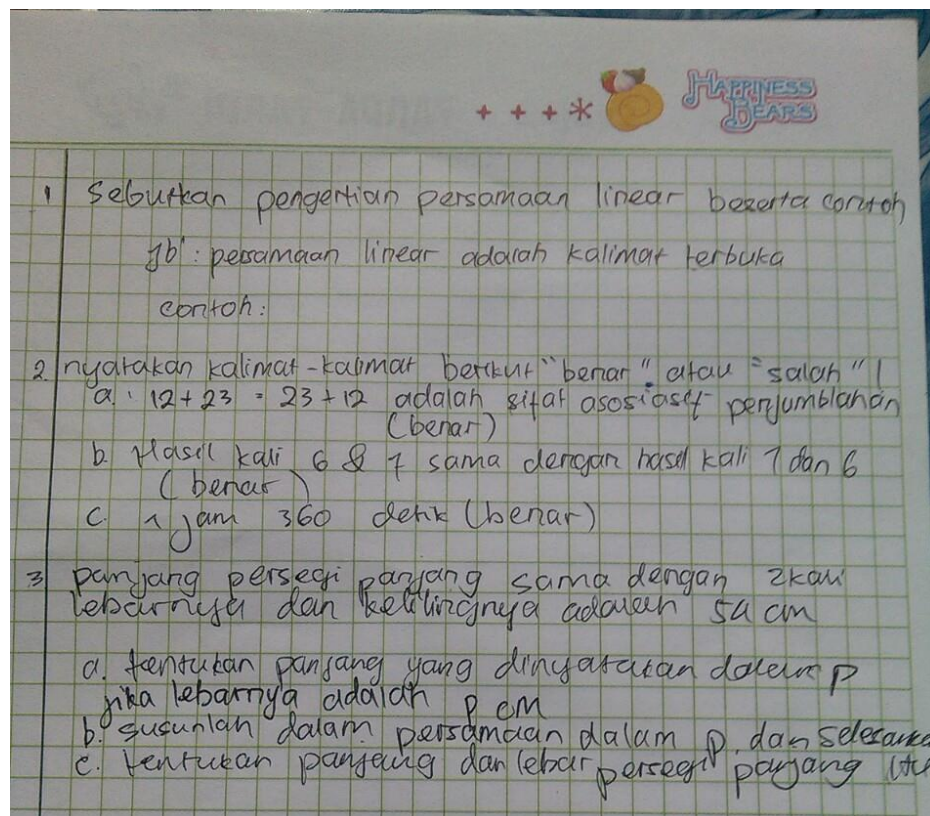 HAPPINESS
BEARS
1 Seburkan pengertian persamaan linear beserta contoh
Jb : persamaan linear adalah kalimat terbuka
contoh :
2. nyatakan kalimat-kalimat berikut "benar" atau "salah" !
a. 12 + 23 = 23 + 12 adalah sifat asosiasif penjumblahan
(benar)
b. Hasil kali 6 & 7 sama dengan hasil kali 7 dan 6
(benar)
c. 1 jam 360 detik (benar)
3 panjang persegi panjang sama dengan 2kali
lebarnya dan kelilingnya adalah 54 cm
a. tentukan panjang yang dinyatakan dalam p
jika lebarnya adalah p cm
b. susunlah dalam persamaan dalam p. dan
c. tentukan panjang dan lebar persegi panjang itu